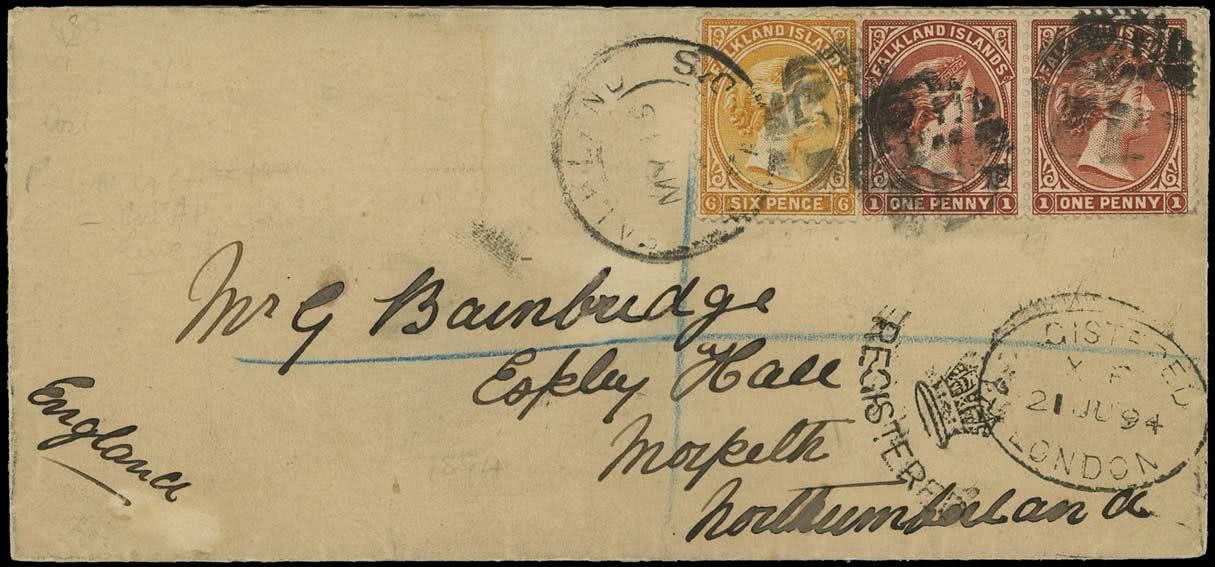 FALKLAND ISLANDS
6 SIX PENCE 6
FALKLAND ISLANDS
1 ONE PENNY 1
FALKLAND ISLANDS
1 ONE PENNY 1
Mr G Bainbridge
Espley Hall
Morpeth
Northumberland
England
REGISTERED
REGISTERED
21 JU 94
LONDON
1894